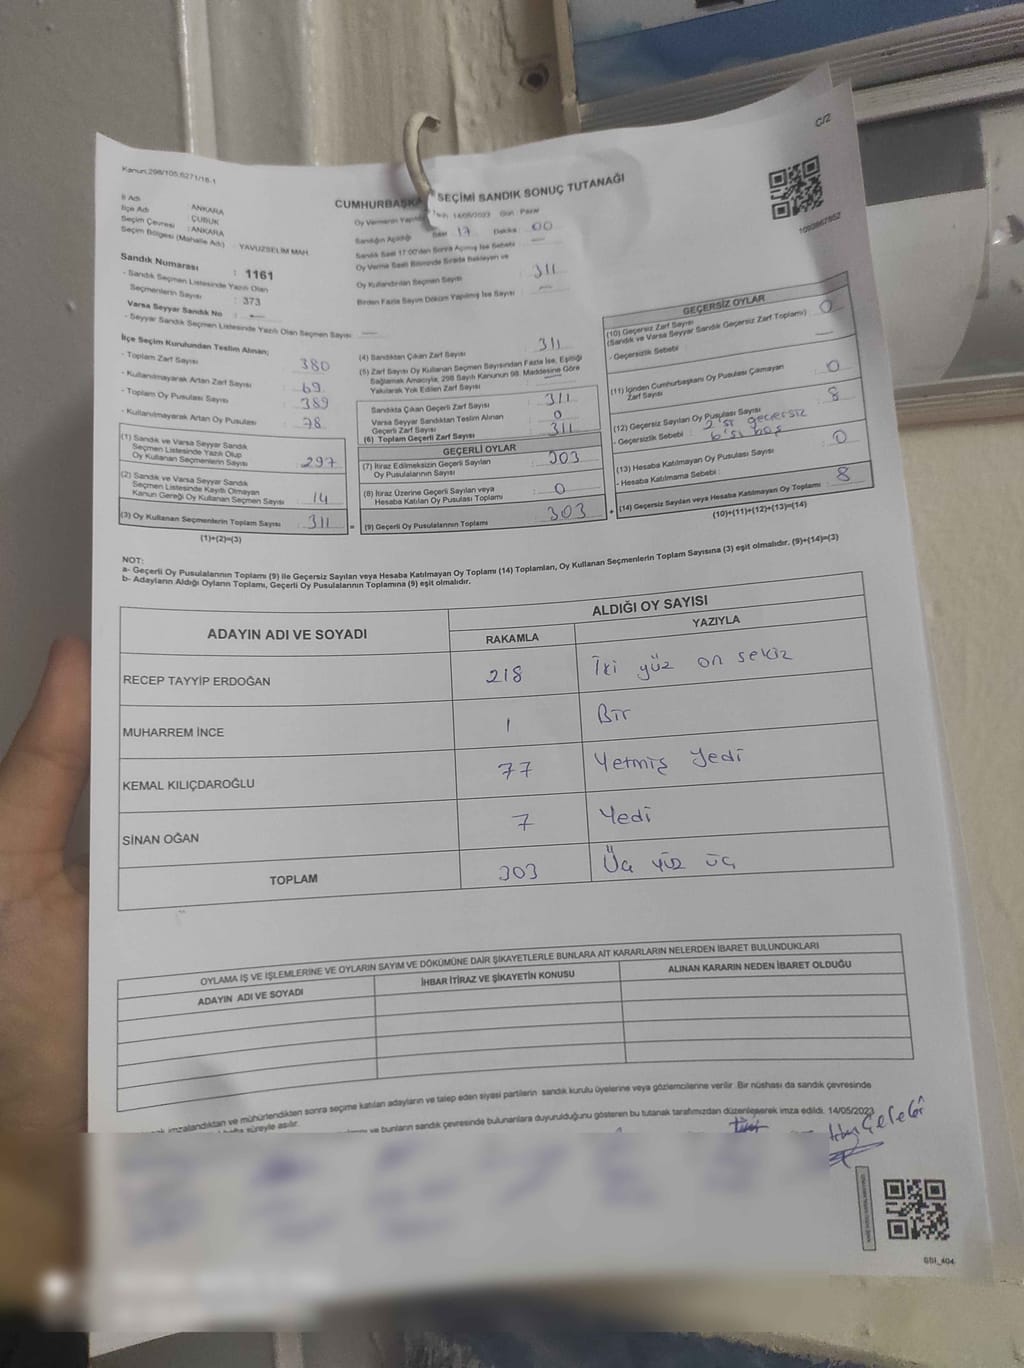 C/2
Kanun:298/105;6271/16-1
CUMHURBAŞKA SEÇİMİ SANDIK SONUÇ TUTANAĞI
1093867852
İl Adı : ANKARA
İlçe Adı : ÇUBUK
Seçim Çevresi : ANKARA
Seçim Bölgesi (Mahalle Adı) : YAVUZSELİM MAH.
Sandık Numarası : 1161
- Sandık Seçmen Listesinde Yazılı Olan
Seçmenlerin Sayısı : 373
Varsa Seyyar Sandık No : —
- Seyyar Sandık Seçmen Listesinde Yazılı Olan Seçmen Sayısı : —
Oy Vermenin Yapıldığı Tarih: 14/05/2023 Gün : Pazar
Sandığın Açıldığı Saat 17 Dakika 00
Sandık Saat 17:00'den Sonra Açılmış İse Sebebi : —
Oy Verme Saati Bitiminde Sırada Bekleyen ve
Oy Kullandırılan Seçmen Sayısı : 311
Birden Fazla Sayım Döküm Yapılmış İse Sayısı : —
İlçe Seçim Kurulundan Teslim Alınan;
- Toplam Zarf Sayısı : 380
- Kullanılmayarak Artan Zarf Sayısı : 69
- Toplam Oy Pusulası Sayısı : 389
- Kullanılmayarak Artan Oy Pusulası : 78
(1) Sandık ve Varsa Seyyar Sandık
Seçmen Listesinde Yazılı Olup
Oy Kullanan Seçmenlerin Sayısı : 297
(2) Sandık ve Varsa Seyyar Sandık
Seçmen Listesinde Kayıtlı Olmayan
Kanun Gereği Oy Kullanan Seçmen Sayısı : 14
(3) Oy Kullanan Seçmenlerin Toplam Sayısı : 311
(1)+(2)=(3)
(4) Sandıktan Çıkan Zarf Sayısı : 311
(5) Zarf Sayısı Oy Kullanan Seçmen Sayısından Fazla İse, Eşitliği
Sağlamak Amacıyla, 298 Sayılı Kanunun 98. Maddesine Göre
Yakılarak Yok Edilen Zarf Sayısı
Sandıkta Çıkan Geçerli Zarf Sayısı : 311
Varsa Seyyar Sandıktan Teslim Alınan
Geçerli Zarf Sayısı : 0
(6) Toplam Geçerli Zarf Sayısı : 311
GEÇERLİ OYLAR
(7) İtiraz Edilmeksizin Geçerli Sayılan
Oy Pusulalarının Sayısı : 303
(8) İtiraz Üzerine Geçerli Sayılan veya
Hesaba Katılan Oy Pusulası Toplamı : 0
(9) Geçerli Oy Pusulalarının Toplamı : 303
GEÇERSİZ OYLAR
(10) Geçersiz Zarf Sayısı
(Sandık ve Varsa Seyyar Sandık Geçersiz Zarf Toplamı) : 0
- Geçersizlik Sebebi : —
(11) İçinden Cumhurbaşkanı Oy Pusulası Çıkmayan
Zarf Sayısı : 0
(12) Geçersiz Sayılan Oy Pusulası Sayısı : 8
- Geçersizlik Sebebi : 2'si geçersiz
6'sı boş
(13) Hesaba Katılmayan Oy Pusulası Sayısı : 0
- Hesaba Katılmama Sebebi :
(14) Geçersiz Sayılan veya Hesaba Katılmayan Oy Toplamı : 8
(10)+(11)+(12)+(13)=(14)
NOT:
a- Geçerli Oy Pusulalarının Toplamı (9) ile Geçersiz Sayılan veya Hesaba Katılmayan Oy Toplamı (14) Toplamları, Oy Kullanan Seçmenlerin Toplam Sayısına (3) eşit olmalıdır. (9)+(14)=(3)
b- Adayların Aldığı Oyların Toplamı, Geçerli Oy Pusulalarının Toplamına (9) eşit olmalıdır.
ADAYIN ADI VE SOYADI ALDIĞI OY SAYISI
RAKAMLA YAZIYLA
RECEP TAYYİP ERDOĞAN 218 İki yüz on sekiz
MUHARREM İNCE 1 Bir
KEMAL KILIÇDAROĞLU 77 Yetmiş Yedi
SİNAN OĞAN 7 Yedi
TOPLAM 303 Üç yüz üç
OYLAMA İŞ VE İŞLEMLERİNE VE OYLARIN SAYIM VE DÖKÜMÜNE DAİR ŞİKAYETLERLE BUNLARA AİT KARARLARIN NELERDEN İBARET BULUNDUKLARI
ADAYIN ADI VE SOYADI İHBAR İTİRAZ VE ŞİKAYETİN KONUSU ALINAN KARARIN NEDEN İBARET OLDUĞU
imzalandıktan ve mühürlendikten sonra seçime katılan adayların ve talep eden siyasi partilerin sandık kurulu üyelerine veya gözlemcilerine verilir. Bir nüshası da sandık çevresinde
süreyle asılır.
ve bunların sandık çevresinde bulunanlara duyurulduğunu gösteren bu tutanak tarafımızdan düzenlenerek imza edildi. 14/05/2023
Çelebi
SSİ_404